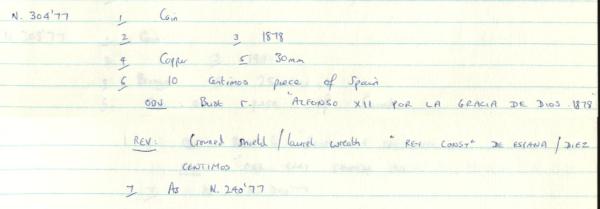 N. 304'77 1 Coin
2 3 1878
4 Copper 5 30mm
6 10 Centimos piece of Spain
OBV Bust r. "ALFONSO XII POR LA GRACIA DE DIOS 1878"
REV: Crowned shield / laurel wreath "REY CONST" DE ESPANA / DIEZ
CENTIMOS"
7 As N. 240'77